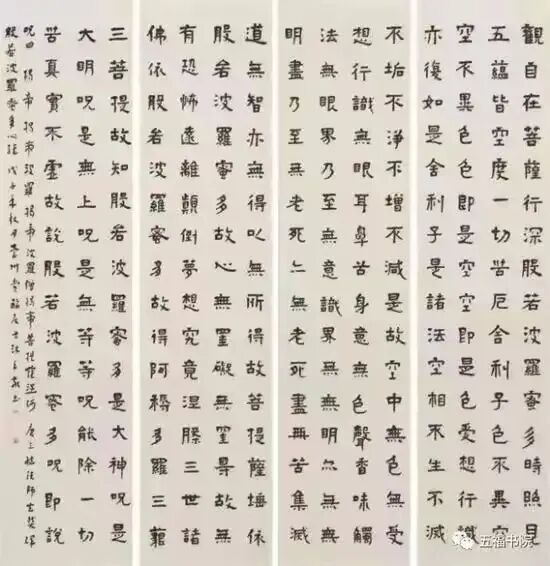 觀自在菩薩行深般若波羅蜜多時照見
五蘊皆空度一切苦厄舍利子色不異空
空不異色色即是空空即是色受想行識
亦復如是舍利子是諸法空相不生不滅
不垢不淨不增不減是故空中無色無受
想行識無眼耳鼻舌身意無色聲香味觸
法無眼界乃至無意識界無無明亦無無
明盡乃至無老死亦無老死盡無苦集滅
道無智亦無得以無所得故菩提薩埵依
般若波羅蜜多故心無罣礙無罣㝵故無
有恐怖遠離顛倒夢想究竟涅槃三世諸
佛依般若波羅蜜多故得阿耨多羅三藐
三菩提故知般若波羅蜜多是大神呪是
大明呪是無上呪是無等等呪能除一切
苦真實不虛故說般若波羅蜜多呪即說
呪曰揭帝揭帝波羅揭帝波羅僧揭帝菩提薩婆訶唐三藏法師玄奘譯
般若波羅蜜多心經戊子年秋月
五福书院